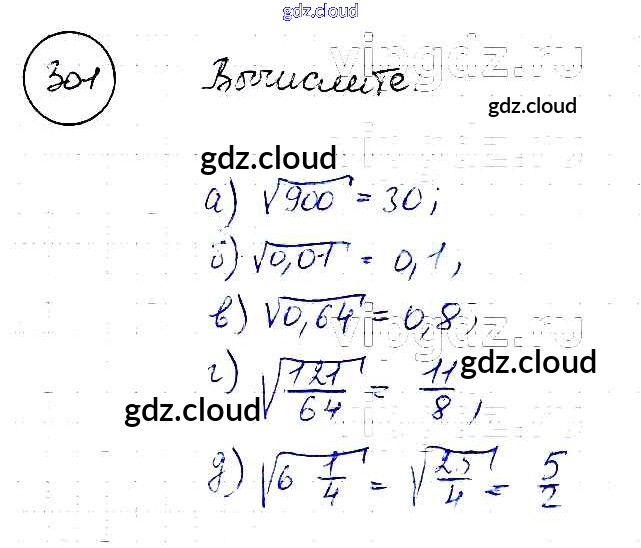 gdz.cloud
301 Вычислите.
vipgdz.ru
gdz.cloud
gdz.cloud
а) √900 = 30;
б) √0,01 = 0,1;
в) √0,64 = 0,8;
vipgdz.ru
г) √121/64 = 11/8;
gdz.cloud
gdz.cloud
д) √6 1/4 = √25/4 = 5/2